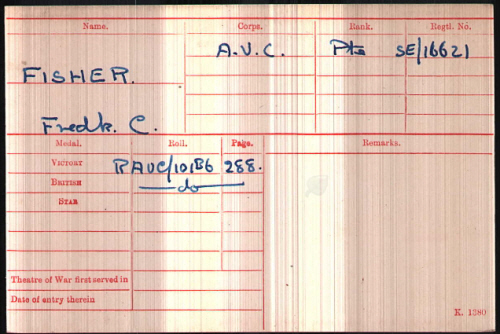 Name. Corps. Rank. Regtl. No.
A.V.C. Pte SE/16621
FISHER.
Fredk. C.
Medal. Roll. Page. Remarks.
VICTORY RAVC/101B6 288.
BRITISH do
STAR
Theatre of War first served in
Date of entry therein
K. 1380